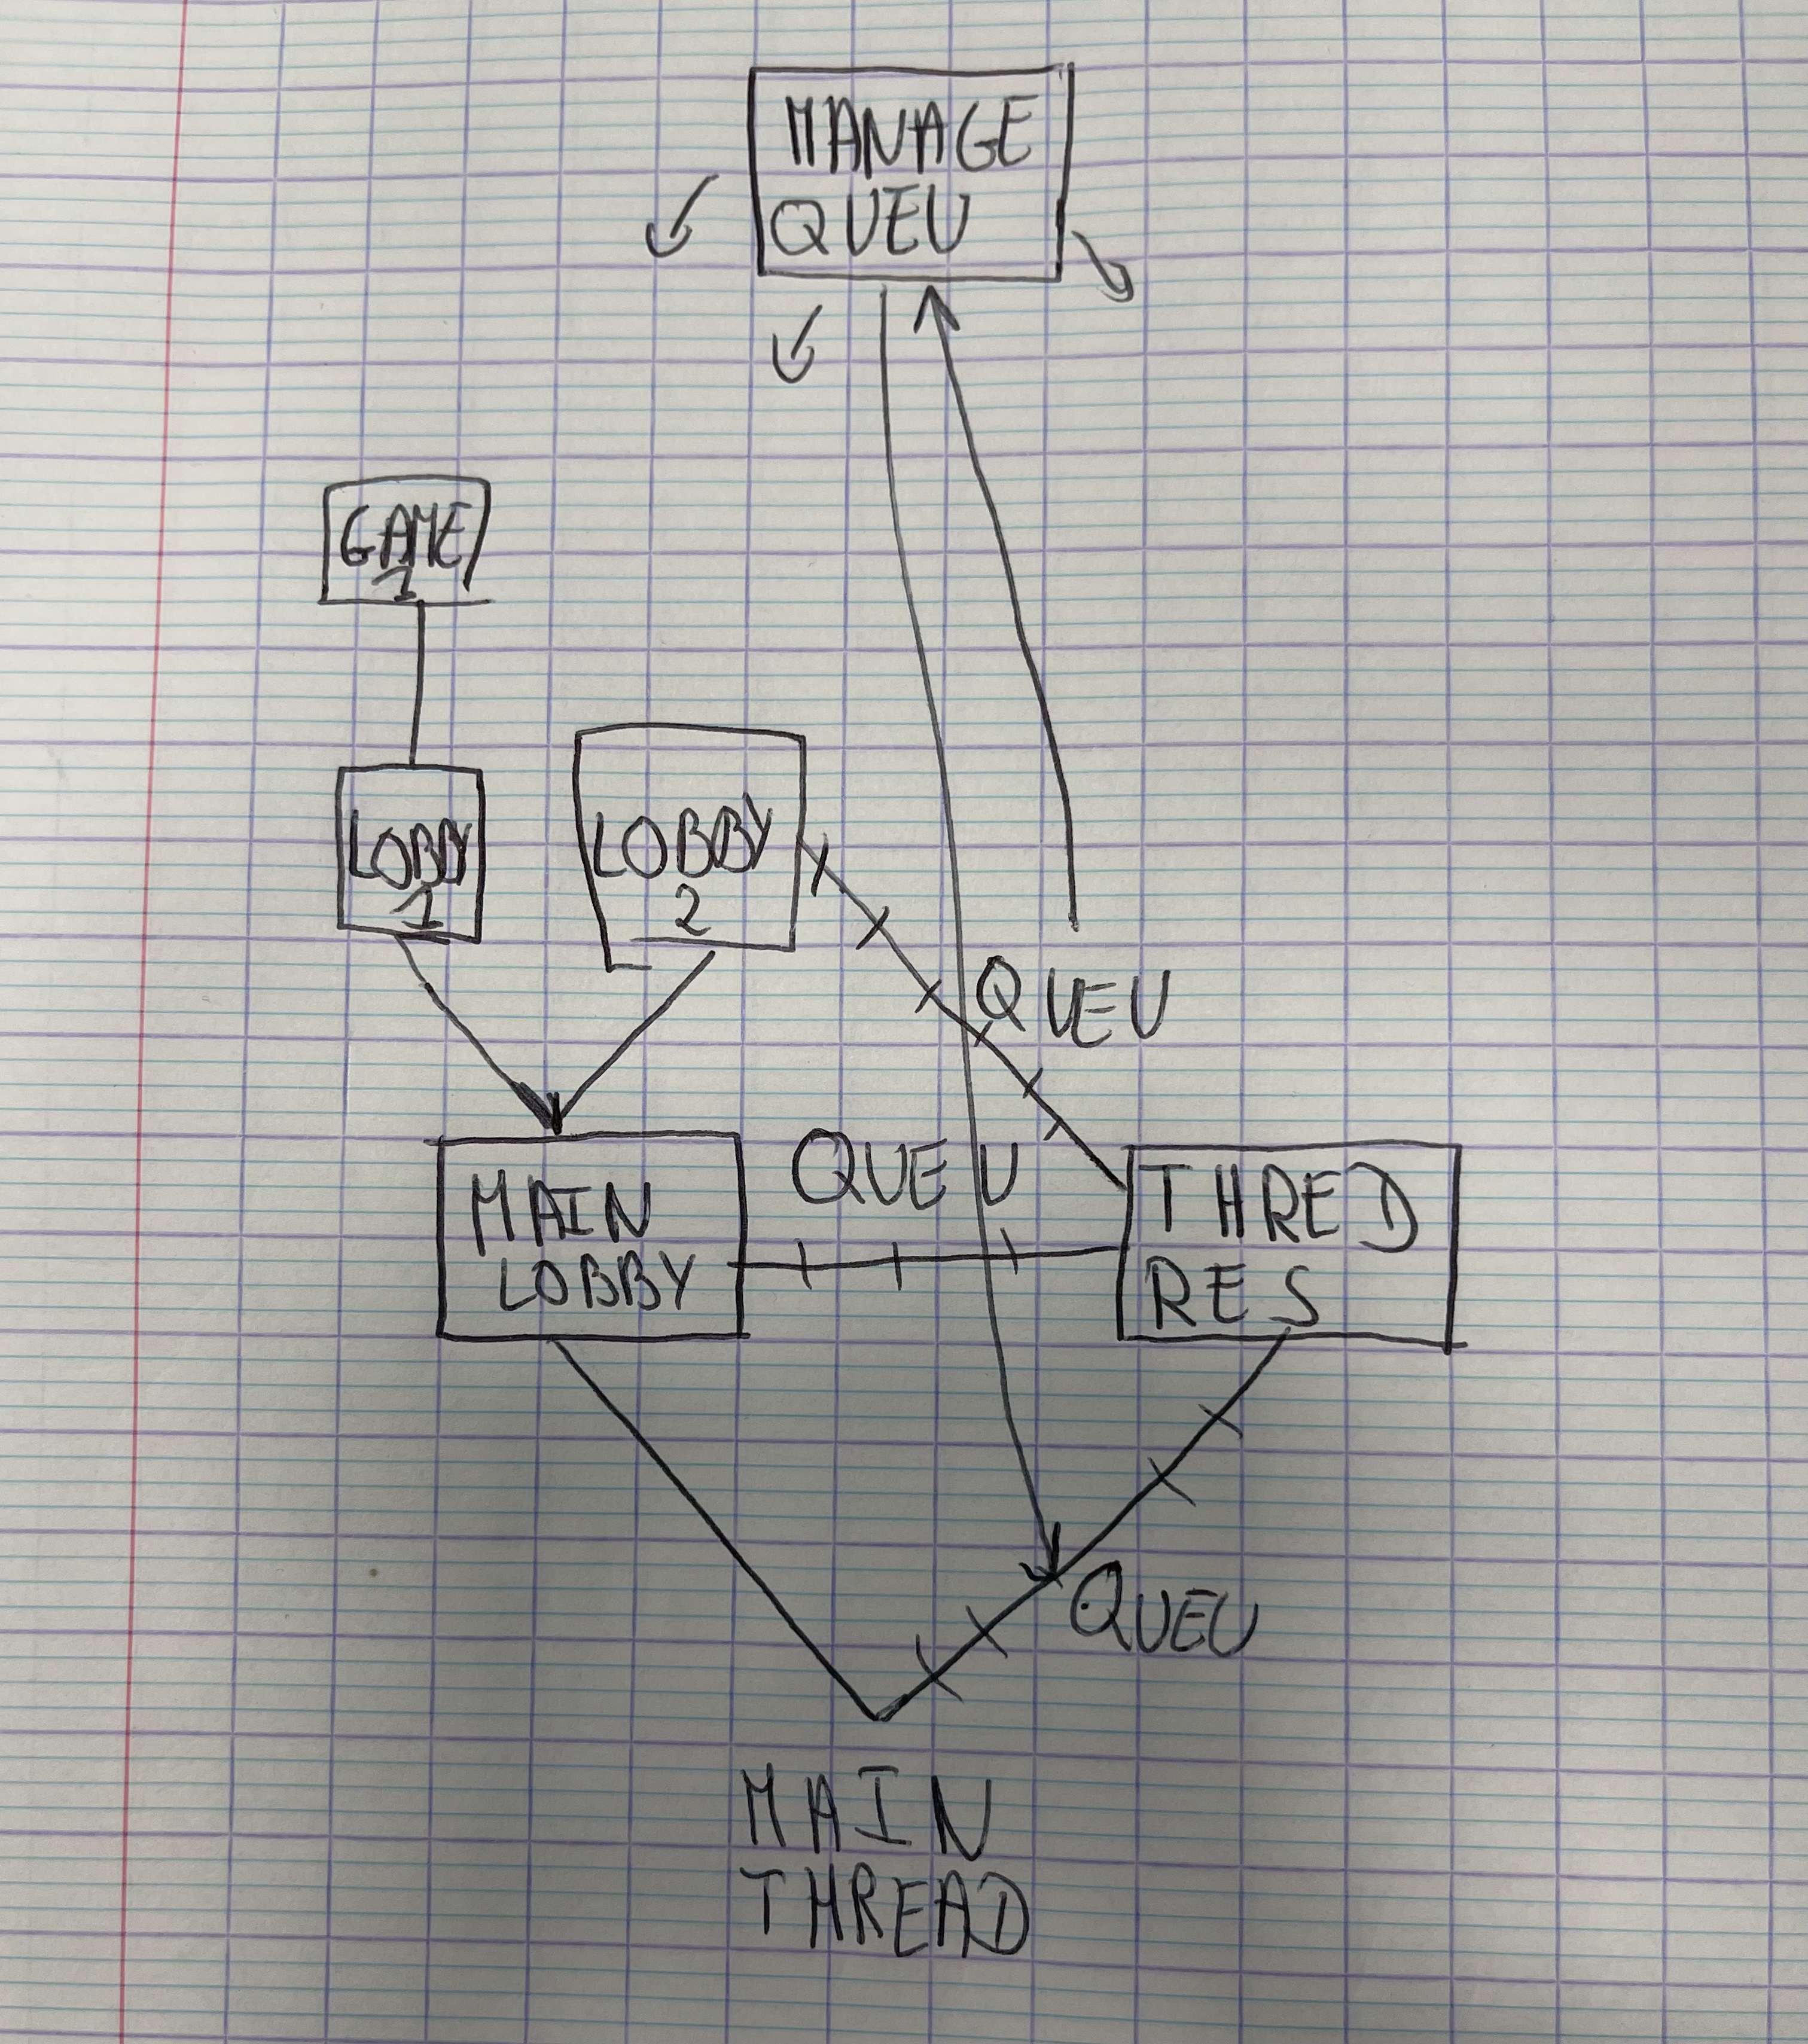 MANAGE
QUEU
GAME
1
LOBBY
1
LOBBY
2
QUEU
QUEU
MAIN
LOBBY
THRED
RES
QUEU
MAIN
THREAD